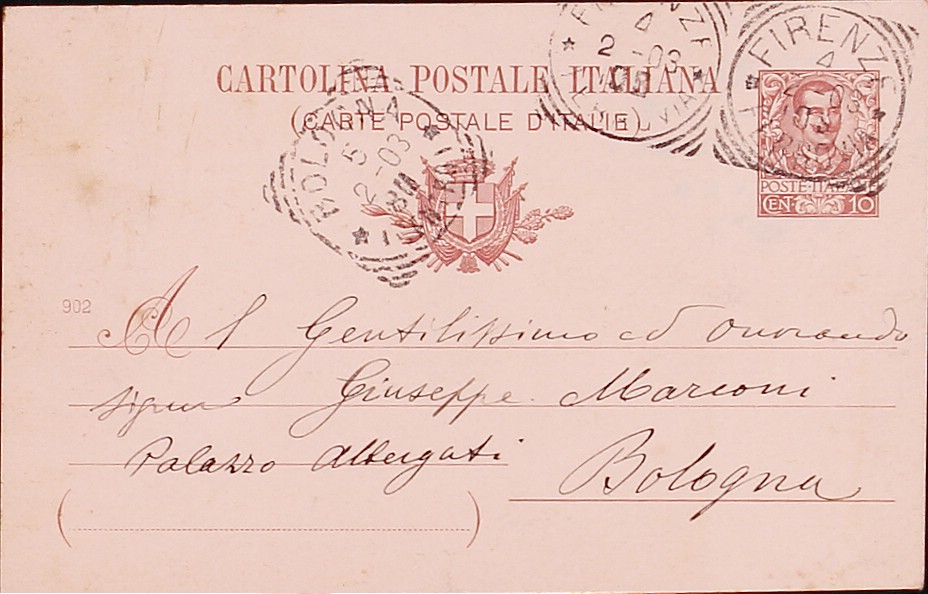 CARTOLINA POSTALE ITALIANA
(CARTE POSTALE D'ITALIE)
FIRENZE
4
2-03
FERROVIA
FIRENZE
4
2-03
FERROVIA
BOLOGNA
5
2-03
8M
POSTE·ITALIANE
CEN 10
902
Al Gentilissimo ed Onorando
Signor Giuseppe Marconi
Palazzo Albergati
Bologna